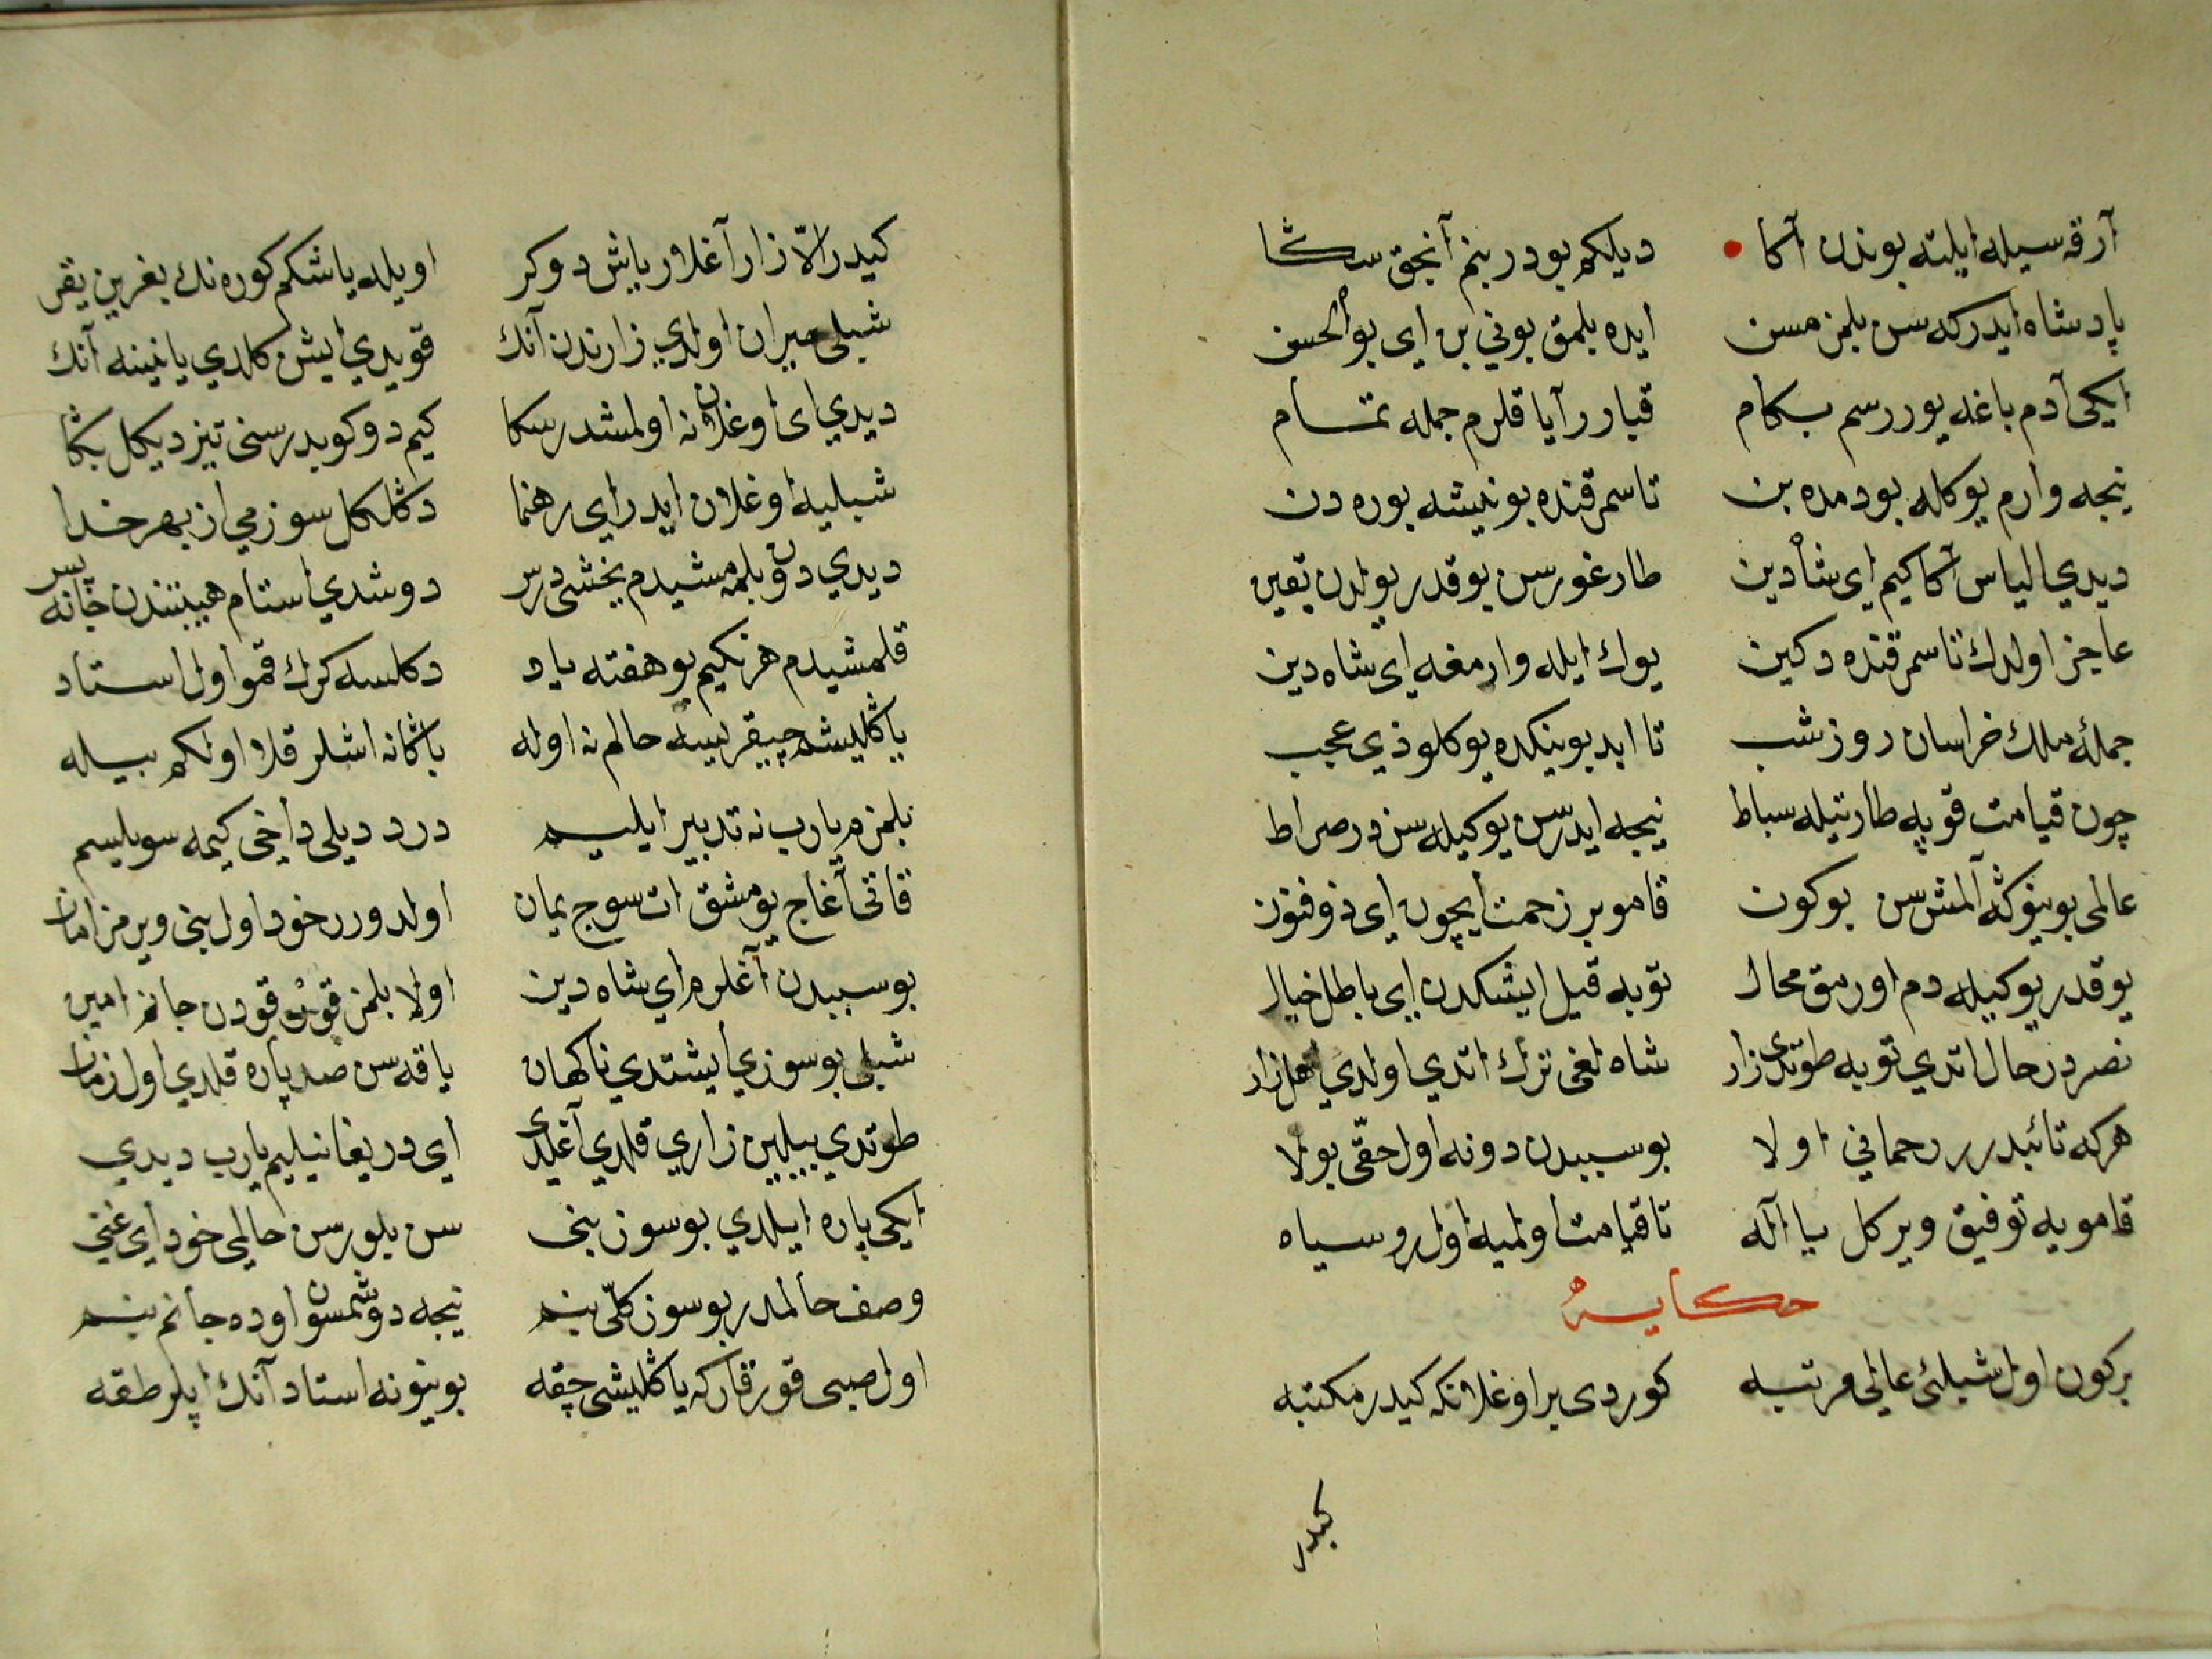 آرقه سیله ایلته بوندن آکا • دیلکم بودر بنم آنجق سڭا
پادشاه ایدرکه سن بلمز مسن ایده بلمق بونی بن ای بوالحسن
ایکی آدم باغه یوررسم بکام قبارر آیاقلرم جمله تمام
نیجه وارم یوکله بودمده بن تا سمرقنده بو نیشه بوره دن
دیدي الیاس آکا کیم ای شاه دین طارغورسن یوقدر یولدن یقین
عاجز اولدك تا سمرقنده دکین یوك ایله وارمغه ای شاه دین
جملهٔ ملك خراسان روز شب تا ابد بوینکده یوکلو ذي عجب
چون قیامت قوپه طارتیله سباط نیجه ایدرسن یوکیله سن در صراط
عالمی بوینوکه آلمش سن بوکون قامو بر زحمت ایچون ای ذو فنون
یوقدر یوکیله دم اورمق محال توبه قیل ایشکدن ای باطل خیال
نصر در حال اتدي توبه طوتدی زار شاه لغی ترك اتدي اولدي
هرکه تائبدر رحمانی اولا بو سببدن دونه اول حقّی بولا
قامویه توفیق ویرکل یا اله تا قیامت اولمیه اول رو سیاه
حکایه
برکون اول شبلئ عالی مرتبه کوردی بر اوغلانکه کیدر مکتبه
کیدر
کیدر الّا زار آغلار یاش دوکر اویله یاشکم کوره نك بغرین یقر
شبلی حیران اولدي زارندن آنك قویدي ایش کلدي یانینه آنك
دیدي ای اوغلان نه اولمشدر سکا کیم دوکوبدر سنی تیز دیکل بکا
شبلیه اوغلان ایدر ای رهنما دکله کل سوزمي از بهر خدا
دیدي دون بلمه مشیدم یخشی درس دوشدي استام هیبتندن جانه پس
قلمشیدم هر نکیم بو هفته یاد دکلسه کرك قمو اول استاد
یاکلیشم چیقرلیسه حالم نه اوله باکا نه اشلر قلا اولکم بیله
بلمزم یارب نه تدبیر ایلیم درد دیلی داخی کیمه سویلیسم
قاتی آغاج یومشق ات سوج یمان اولدورر خود اول بنی ویرمز امان
بو سببدن آغلرم ای شاه دین اولا بلمز قورقودن جانم امین
شبلی بو سوزي ایشتدي ناکهان یاقه سن صد پاره قلدي اول زمان
طوتدي بیلیین زاري قلدي آغلدی ای دریغا نیلیم یارب دیدي
ایکی پاره ایلدي بو سوز بنی سن بلورسن حالمی خود ای غنی
وصف حالمدر بو سوز کلّی بنم نیجه دوشمسون اوده جانم بنم
اول صبی قورقارکه یاکلیشی چقه بوینونه استاد آنك ایلر طقه